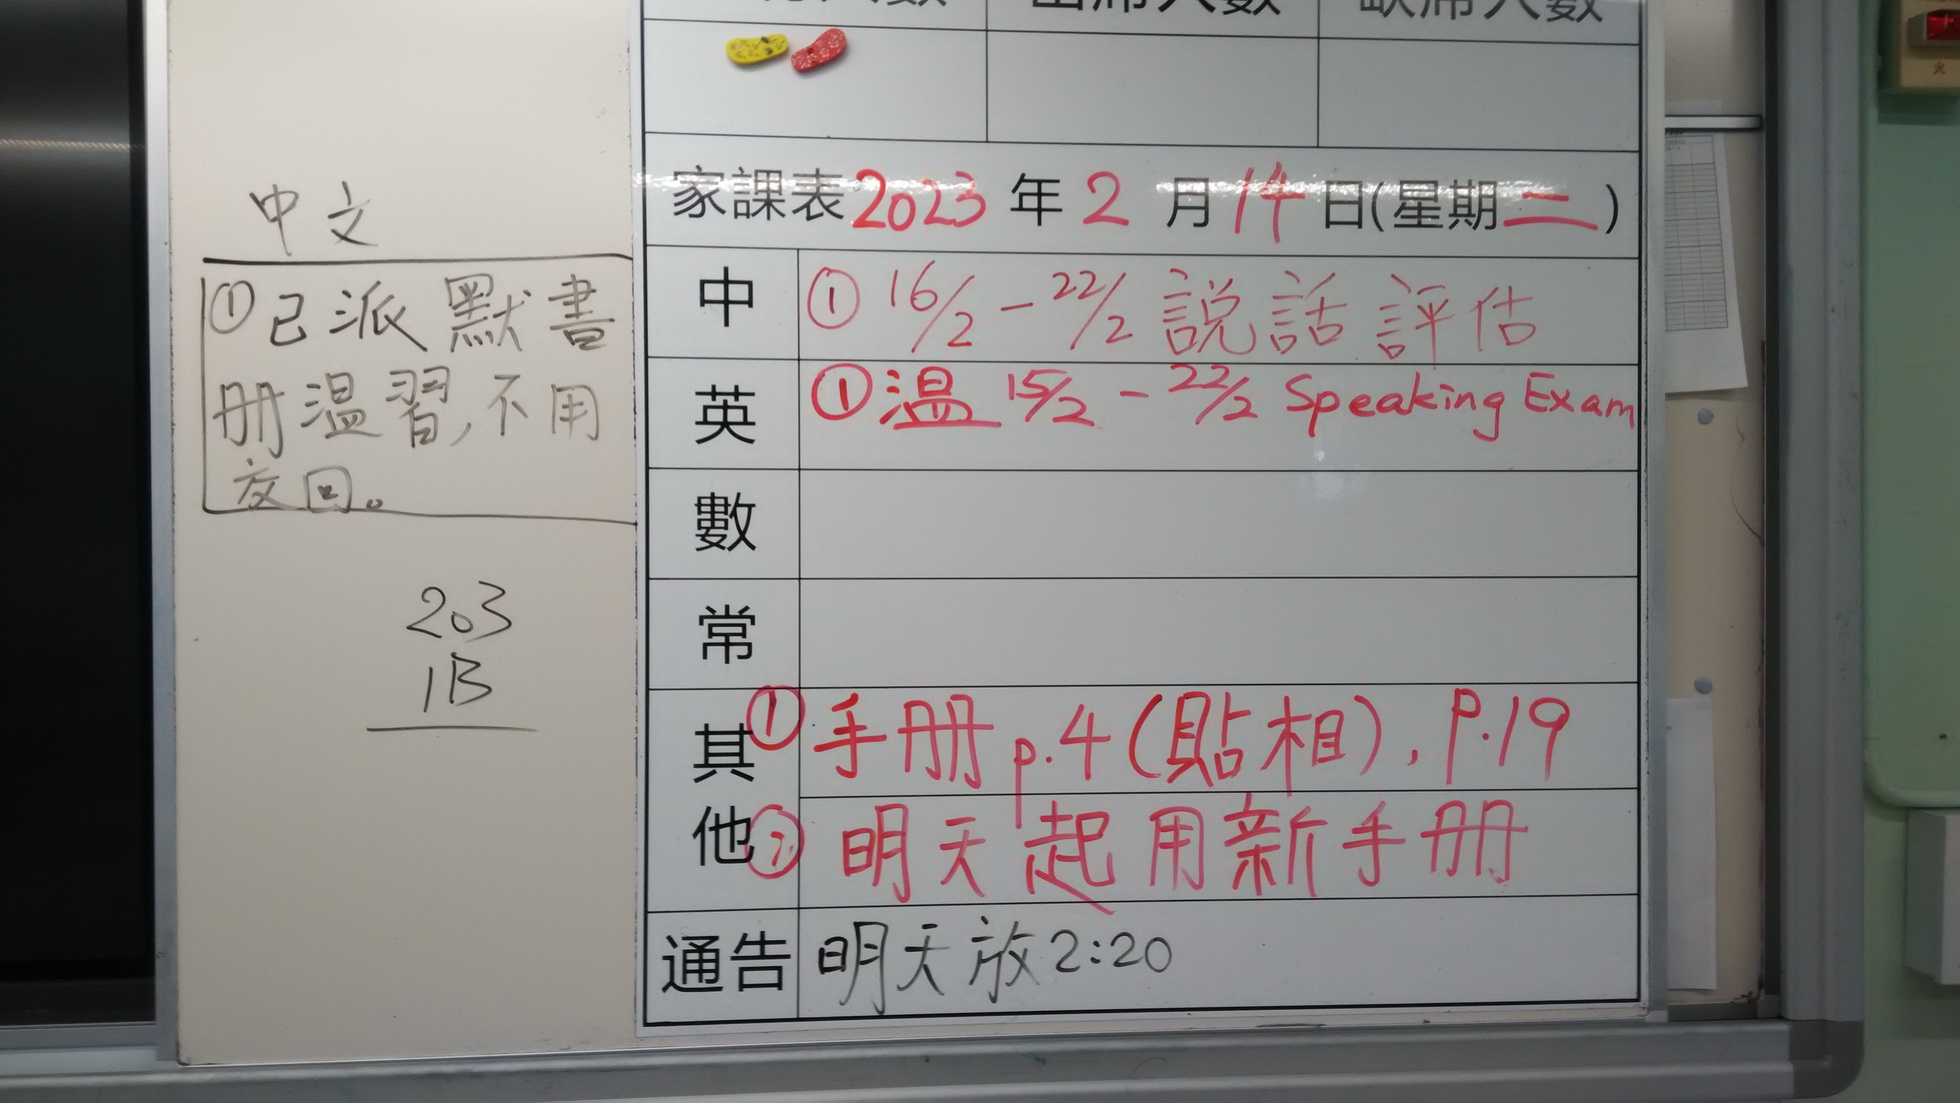 出席人數
缺席人數
家課表2023年2月14日(星期二)
中
① 16/2 - 22/2 説話評估
英
① 温 15/2 - 22/2 Speaking Exam
數
常
其他
① 手册 p.4 (貼相), P.19
② 明天起用新手册
通告
明天放2:20
中文
①已派默書
册温習,不用
交回。
203
1B
火